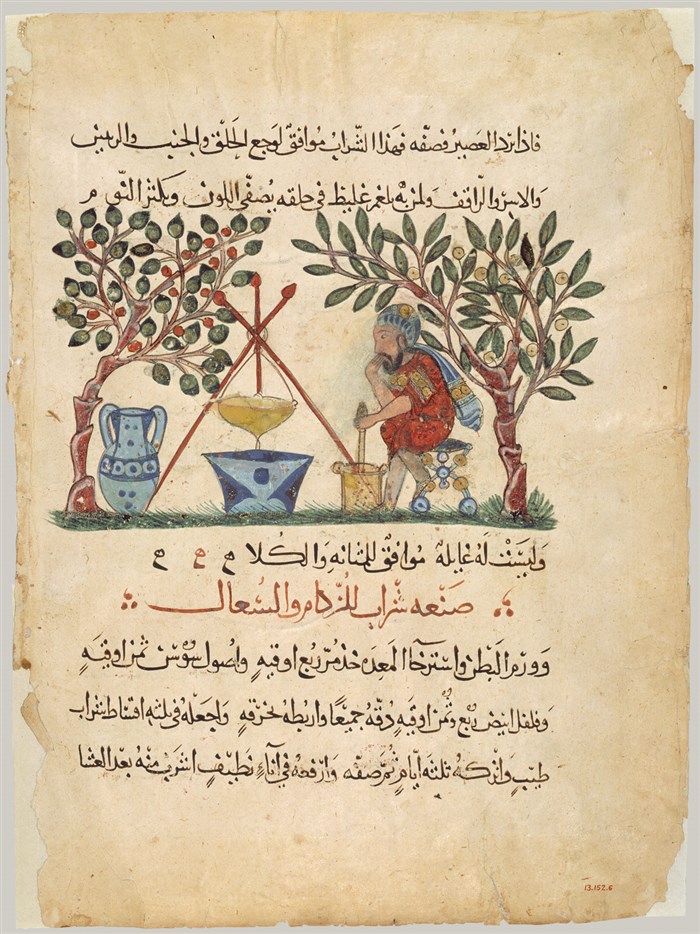 فاذا برد العصير فصفّه فهذا الشراب موافق لوجع الحلق والجنب والريتين
والاسر والراقف ولمن به بلغم غليظ في حلقه يصفّي اللون ويكثر النوم م
وليست له غايلة موافق للمثانه والكلا ح ح ح
صنعه شراب للزكام والسعال
وورم البطن واسترخا المعده خذ مرّ ربع اوقيه واصول سوسن ثمن اوقيه
وفلفل ابيض ربع وثمن اوقيه دقه جميعًا واربطه بخرقه واجعله في ثلثه اقساط شراب
طيب واتركه ثلثه ايام ثم صفه وارفعه في اناء نظيف اشرب منه بعد العشا
13.152.6